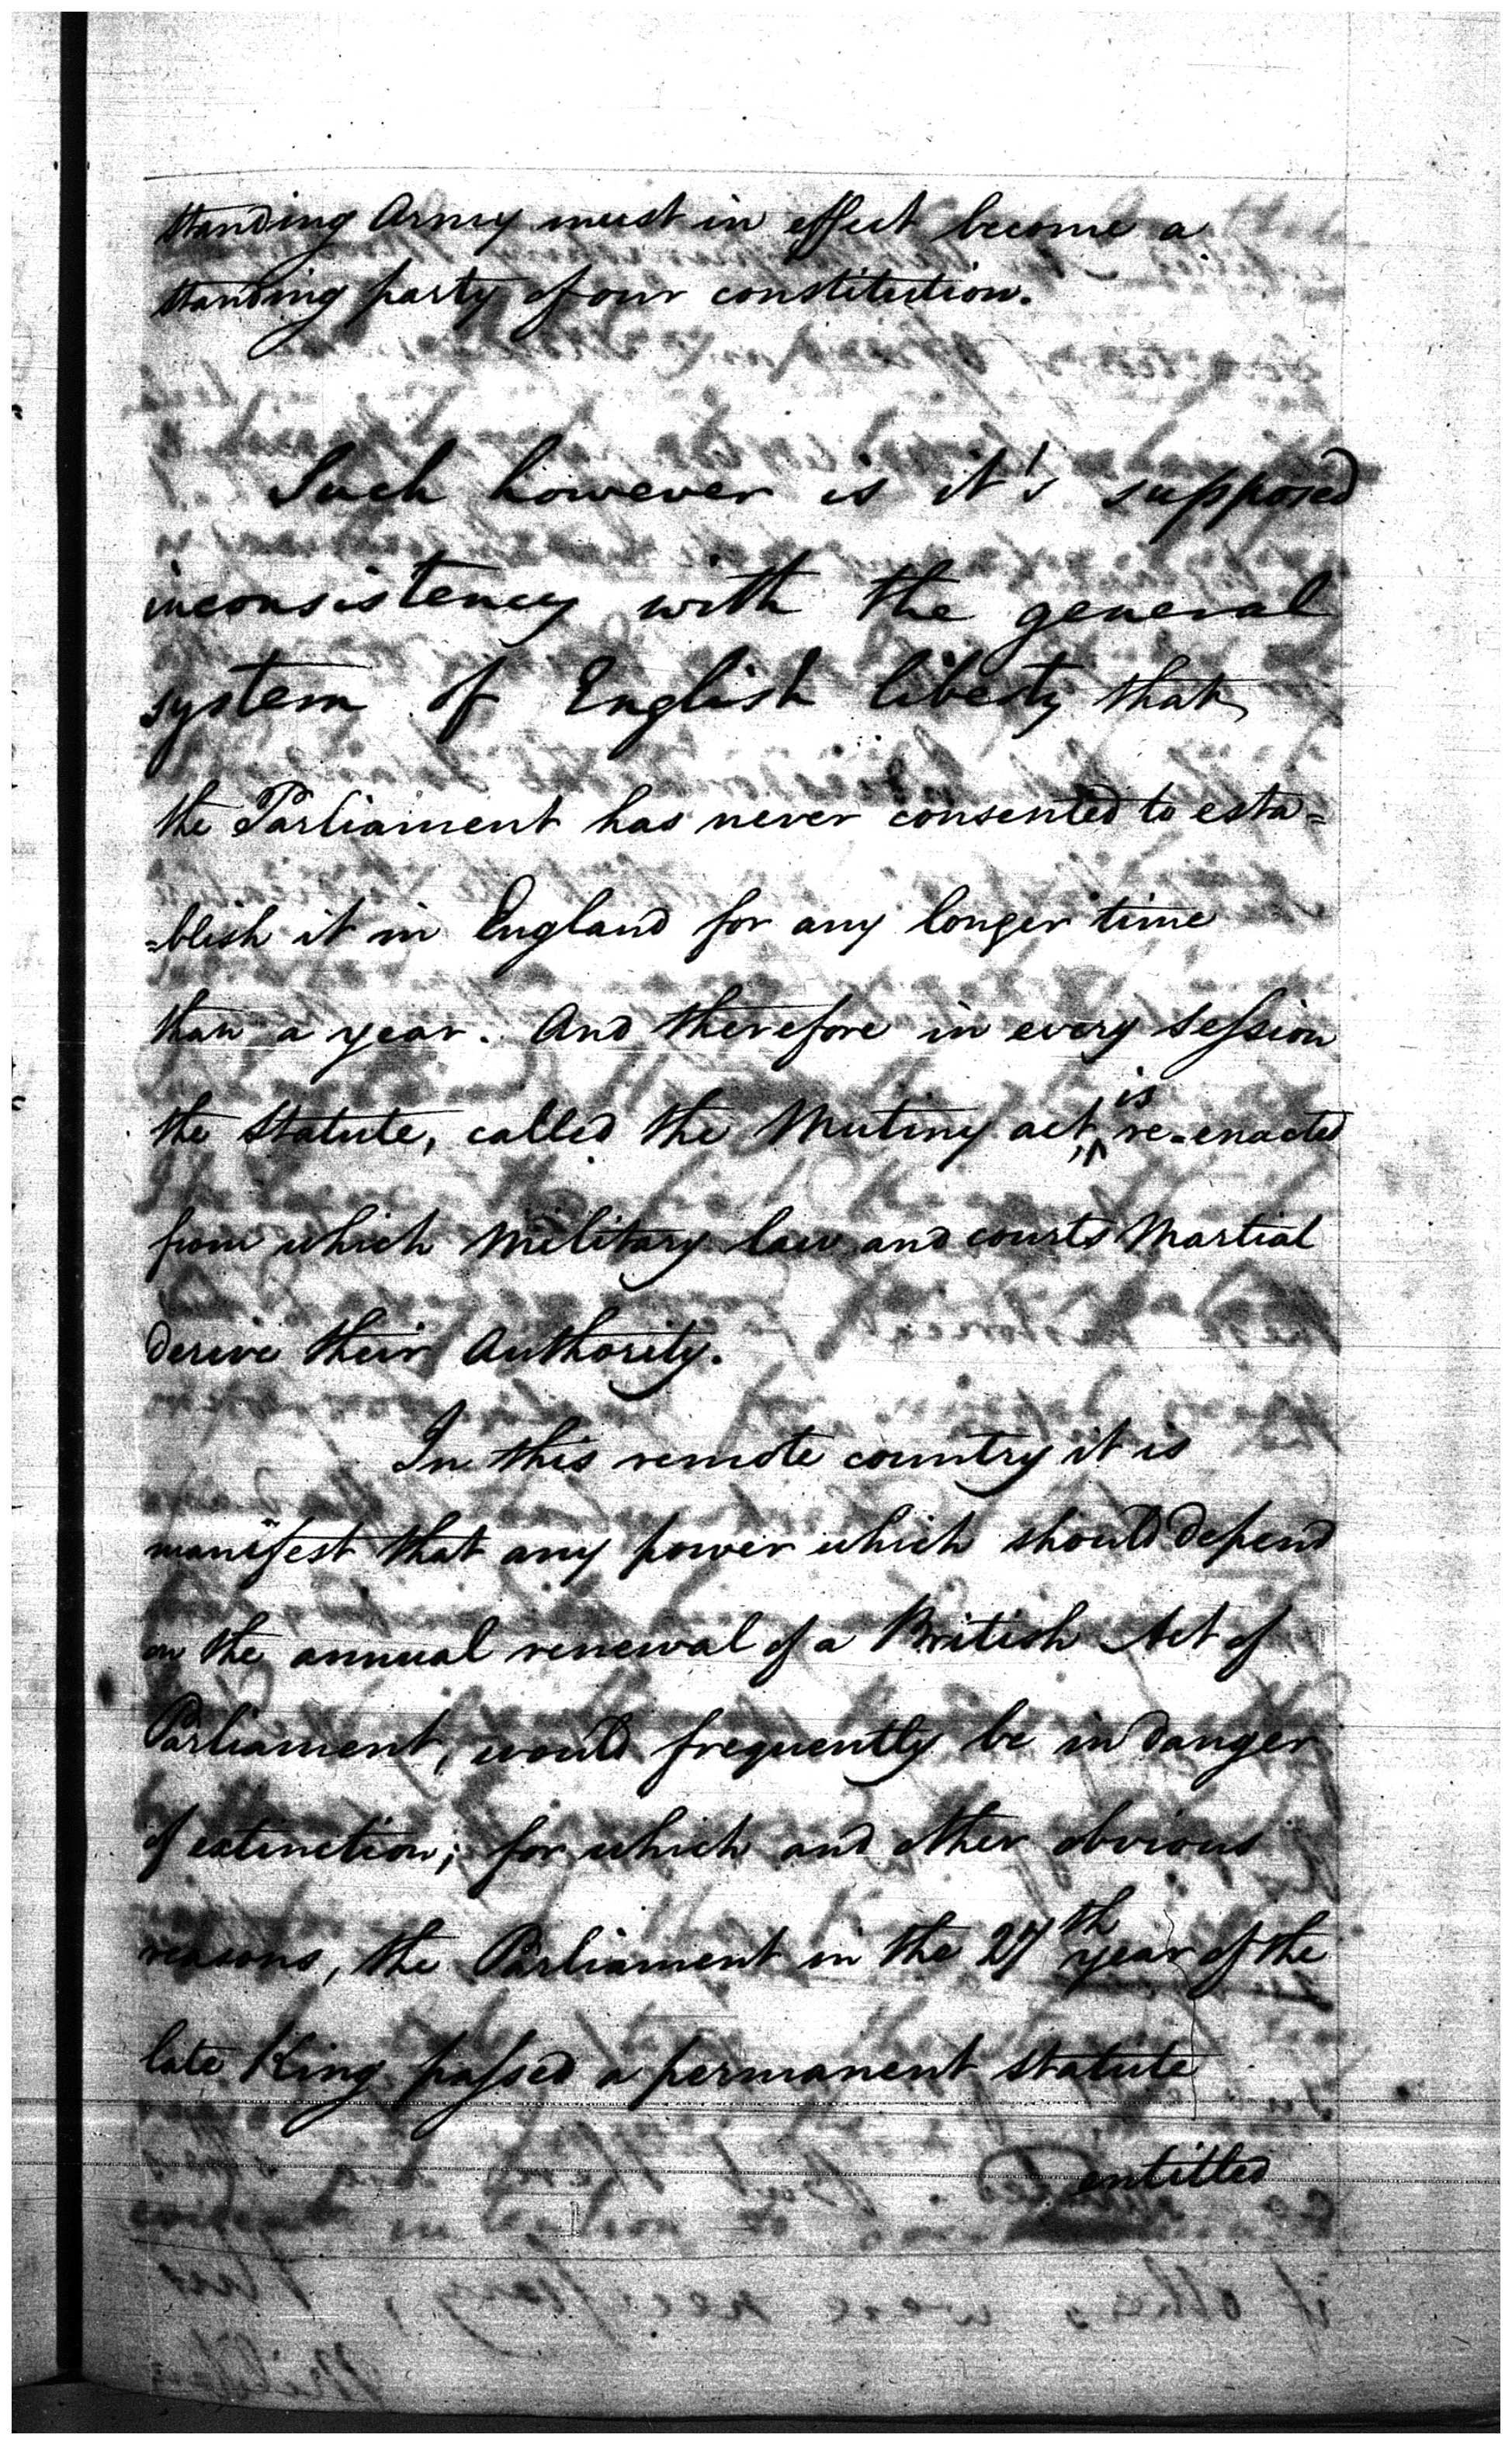 standing Army must in effect become a
standing party of our constitution.
Such however is it's supposed
inconsistency with the general
system of English liberty that
the Parliament has never consented to esta=
=blish it in England for any longer time
than a year. And therefore in every session
the Statute, called the Mutiny act, is re-enacted
from which Military law and courts Martial
derive their Authority.
In this remote country it is
manifest that any power which should depend
on the annual renewal of a British Act of
Parliament, would frequently be in danger
of extinction; for which and other obvious
reasons, the Parliament in the 27th year of the
late King passed a permanent statute
entitled